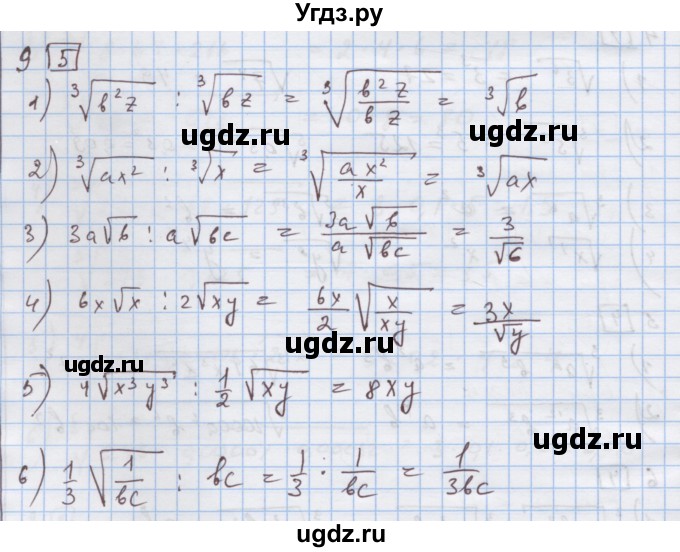 Угдз.ру
9 5
1) ∛(b²z) : ∛(bz) = ∛(b²z / bz) = ∛b
ugdz.ru ugdz.ru
2) ∛(ax²) : ∛x = ∛(ax² / x) = ∛(ax)
3) 3a√b : a√(bc) = 3a√b / a√(bc) = 3 / √6
ugdz.ru
4) 6x√x : 2√(xy) = 6x/2 √(x / xy) = 3x / √y
ugdz.ru
5) 4√(x³y³) : 1/2 √(xy) = 8xy
ugdz.ru
6) 1/3 √(1 / bc) : bc = 1/3 · 1/bc = 1 / 3bc
ugdz.ru
ugdz.ru